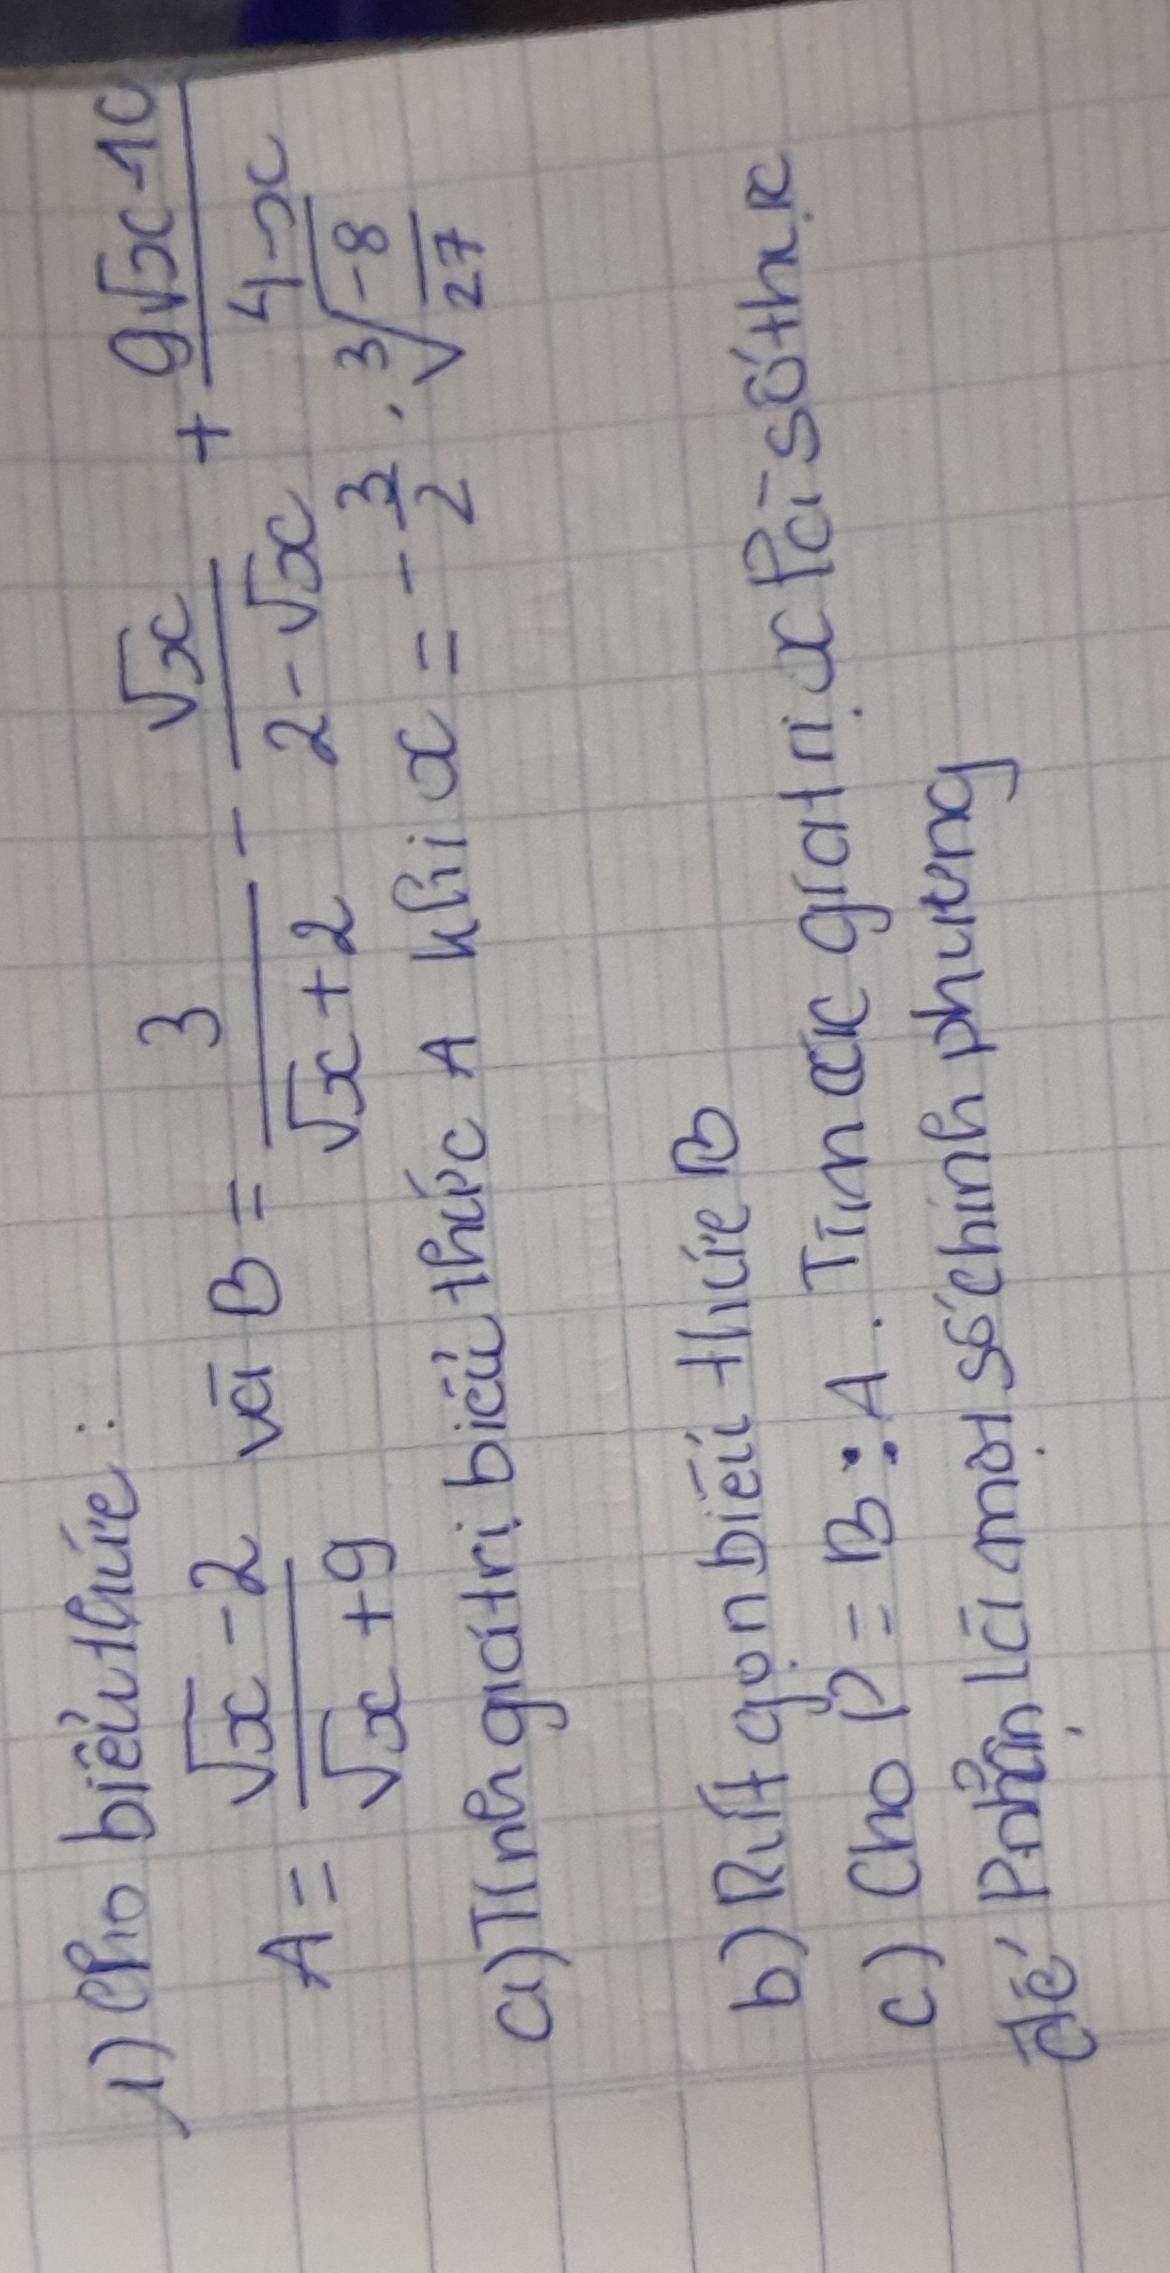 1) Cho biểu thức:
A = \frac{\sqrt{x} - 2}{\sqrt{x} + 9} và B = \frac{3}{\sqrt{x} + 2} - \frac{\sqrt{x}}{2 - \sqrt{x}} + \frac{9\sqrt{x} - 10}{4 - x}
a) Tính giá trị biểu thức A khi x = -\frac{3}{2} . \sqrt[3]{\frac{-8}{27}}
b) Rút gọn biểu thức B
c) Cho P = B : A. Tìm các giá trị x là số thực
để P nhận là một số chính phương